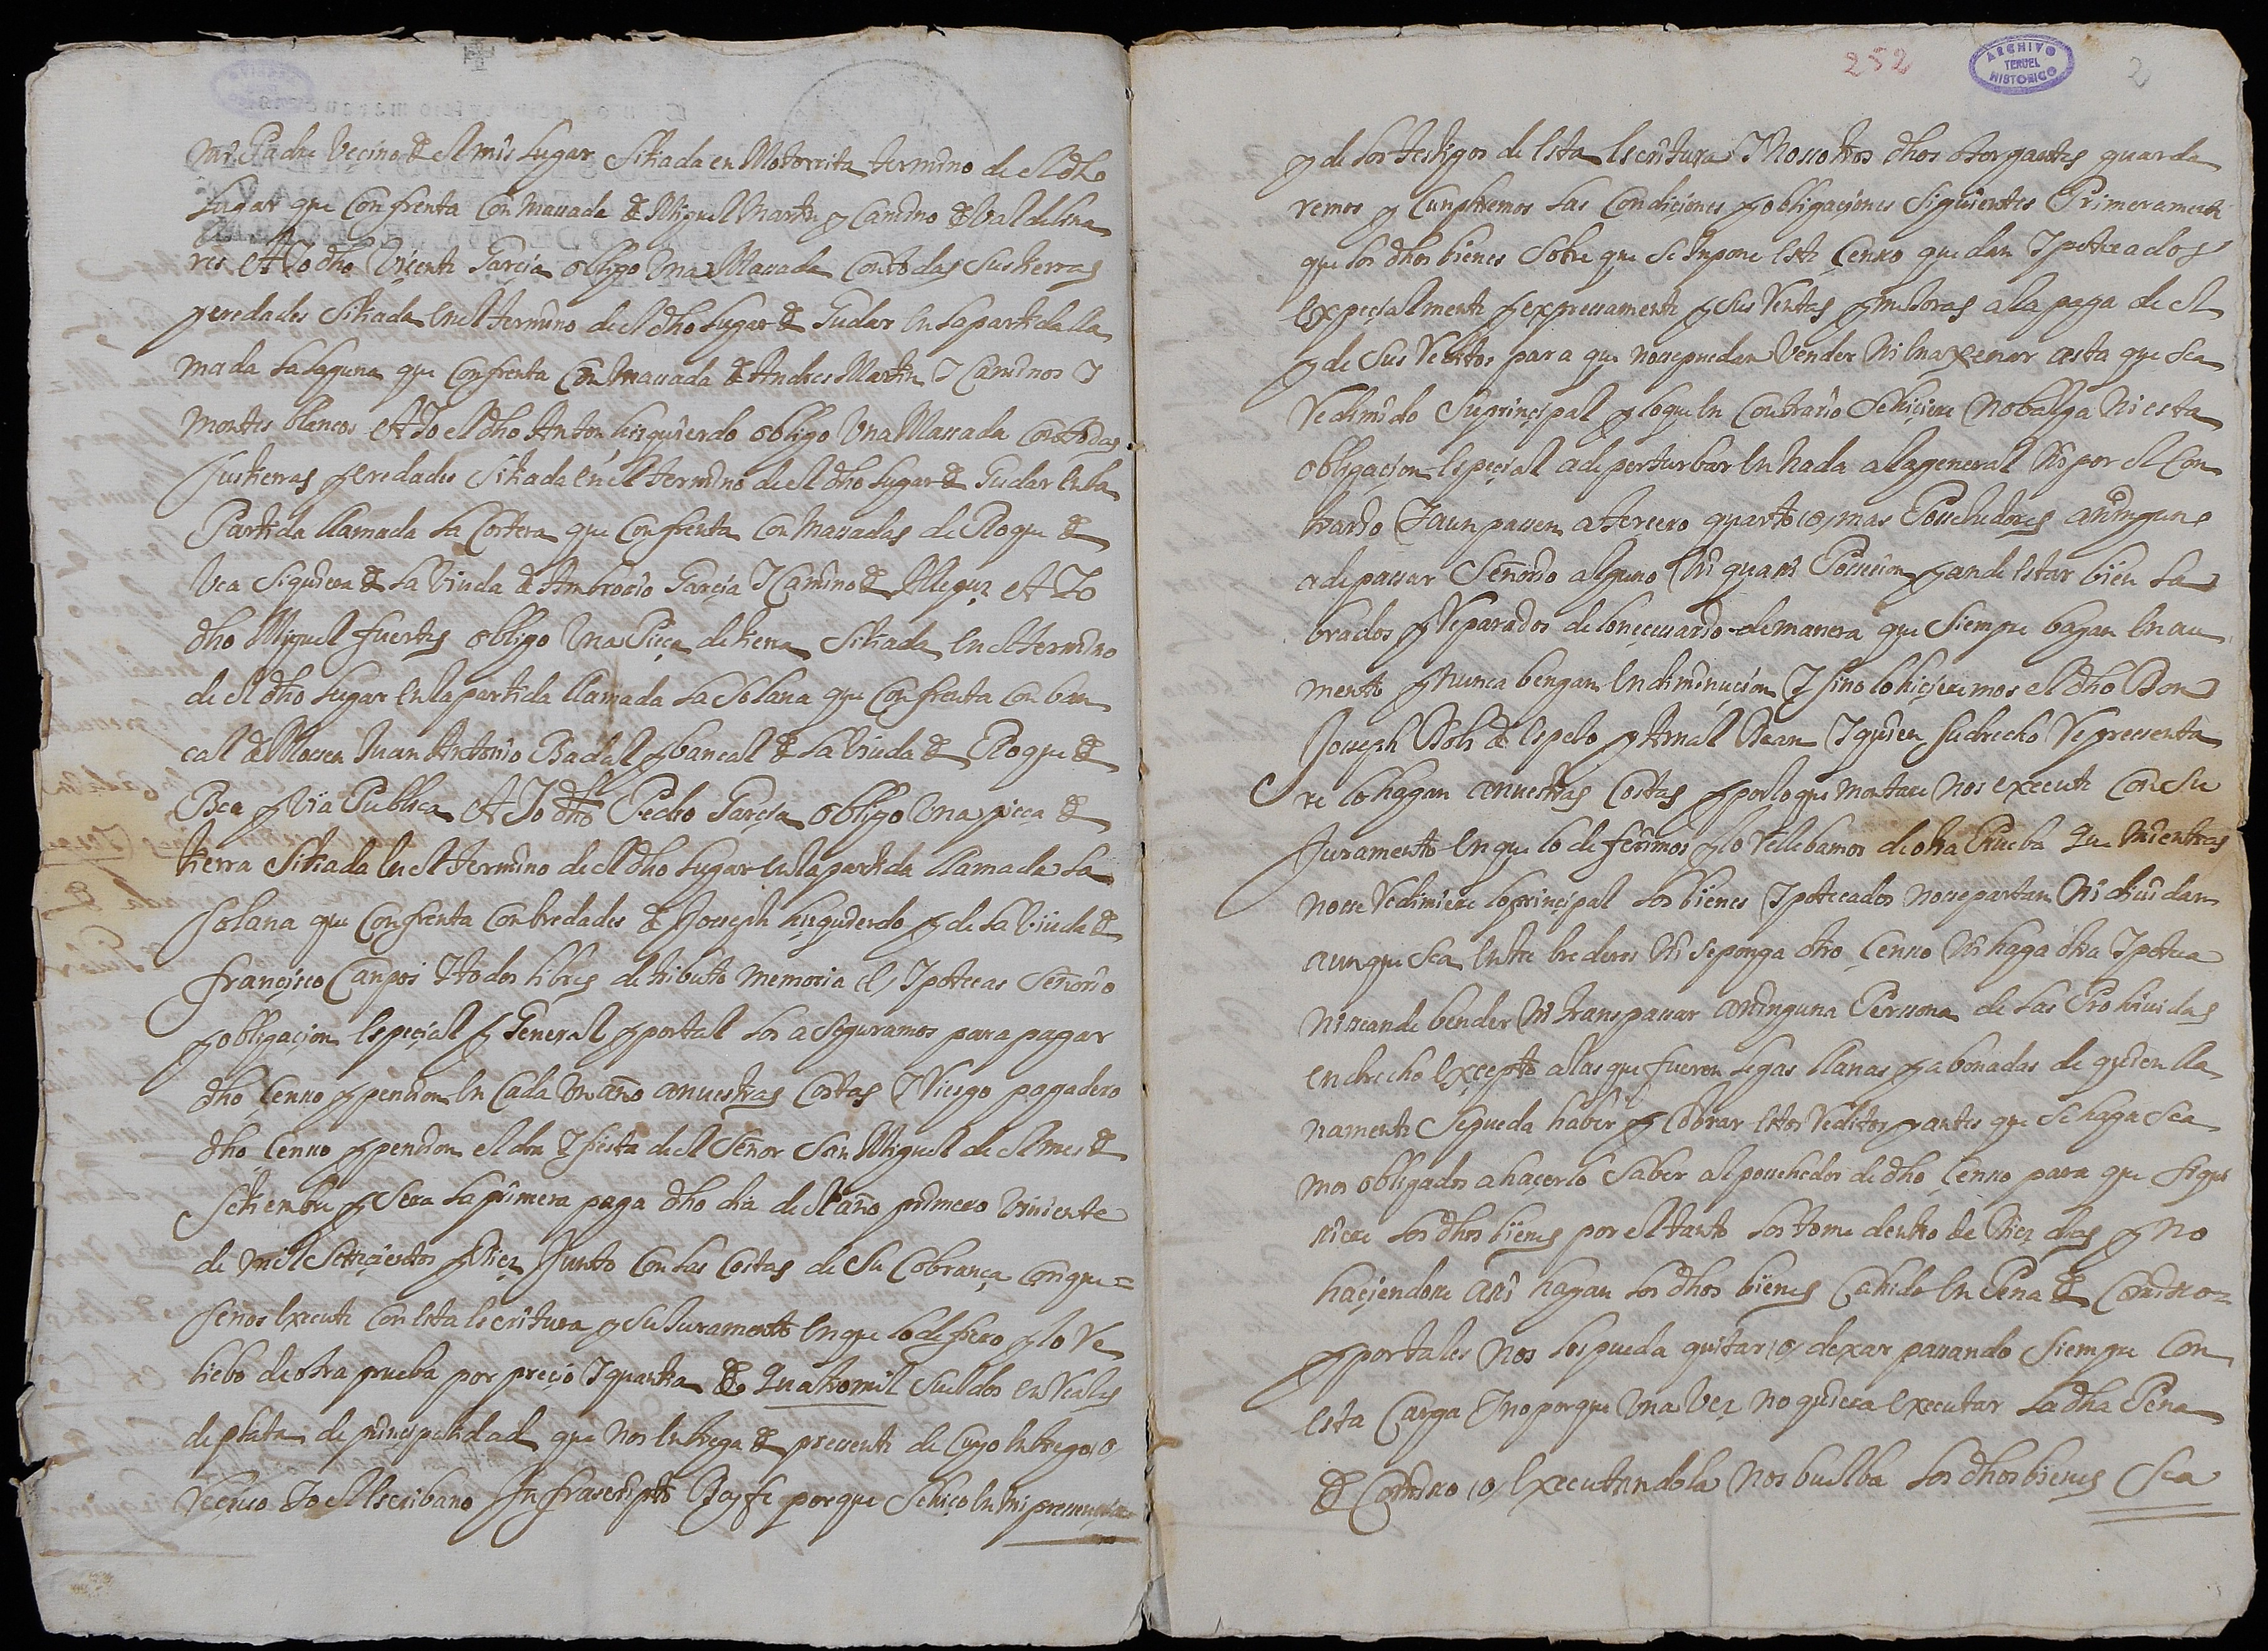 mi Padre Vecino de el mis lugar Sitiada en Motorrita termino de el dho
Lugar que Confrenta Con massada de Miguel Martin y Camino de Valdelina
res Et Yo dho Viçente Garçia obligo Una Massada Con todas sus tierras
y eredades Sitiada en el termino de el dho Lugar de Gudar en la partida lla
mada La Laguna que Confrenta Con Massada de Andres Martin Y Caminos Y
Montes blancos Et Yo el dho Anton Hizquierdo obligo Una Massada Con todas
sus tierras y eredades Sitiada en el termino de el dho Lugar de Gudar en la
Partida llamada La Costera que Confrenta Con Massadas de Roque de
Vea Siquiera de La Viuda de Ambrosio Garçia Y Camino de Allepuz Et Yo
dho Miguel fuertes obligo Una Pieça de tierra Sitiada en el termino
de el dho Lugar en la partida llamada La Solana que Confrenta Con ban
cal de Mossen Juan Antonio Badal y bancal de La Viuda de Roque de
Bea y Via Publica Et Yo dho Pedro Garçia obligo Una pieça de
tierra Sitiada en el termino de el dho Lugar en la partida llamada La
Solana que Confrenta Con eredades de Josseph Hizquierdo y de La Viuda de
françisco Campos Y todos libres de tributo memoria (o) Ypotecas Señorio
y obligaçion espeçial y General y por tal los aseguramos para pagar
dho Çenso y pension en Cada Un año a nuestras Costas Y Riesgo pagadero
dho Çenso y pension el dia Y fiesta de el Señor San Miguel de el mes de
Setiembre y Sera La primera paga dho dia de el año primero Viniente
de mil Setteçientos y Diez Junto Con Las Costas de Su Cobrança Con que =
Se nos execute Con esta escritura y Su Juramento en que lo defiero y lo Re
liebo de otra prueba por preçio Y quantia de Quatro mil Sueldos en Reales
de plata de prinçipalidad que nos entrega de pressente de Cuyo entrego (o)
Reçivo Yo el escribano Infrascripto Doy fe porque Se hiço en mi pressençia
252
ARCHIVO
TERUEL
HISTORICO
2
y de Los testigos de esta escritura Y Nossotros dhos otorgantes guarda
remos y Cunpliremos Las Condiciones y obligaçiones Siguientes Primeramente
que los dhos bienes Sobre que Se Inpone este Çenso quedan Ypotecados
expeçialmente y expressamente y Sus Rentas y mejoras a la paga de el
y de Sus Reditos para que no se puedan Vender Ni enaxenar asta que Sea
Redimido Su prinçipal y lo que en Contrario Se hiçiere No balga Ni esta
obligaçion espeçial a de perturbar en Nada a la general Ni por el Con
trario Y aun passen a terçero quarto (o) mas Posehedores a ninguno
a de passar Señorio alguno Ni quasi Possesion y an de estar bien La
brados y Reparados de lo neçessario de manera que Siempre bayan en au
mento y Nunca bengan en diminuçion Y Si no lo hiçieremos el dho Don
Josseph de espelo y Arnal Dean Y quien Su drecho Repressenta
re lo hagan a nuestras Costas y por lo que Montare Nos execute Con Su
Juramento en que lo deferimos y lo Rellebamos de otra Prueba Que Mientras
No se Redimiere lo prinçipal Los bienes Ypotecados No se partan Ni dividan
aunque Sea entre erederos Ni se ponga otro Çenso Ni haga otra Ypoteca
Ni se an de bender Ni transpassar a ninguna Perssona de Las Prohividas
en drecho excepto a las que fueren legas llanas y abonadas de quien lla
namente Se pueda haber y Cobrar estos Reditos y antes que Se haga Sea
mos obligados a haçerlo Saber al possehedor de dho Çenso para que Si qui
siere Los dhos bienes por el tanto Los tome dentro de Diez dias y No
haçiendose assi hayan Los dhos bienes Cahido en Pena de Comisso =
y por tales Nos Los pueda quitar (o) dexar passando Siempre Con
esta Carga Y no porque Una Vez No quiera executar La dha Pena
de Comisso (o) executandola Nos buelba Los dhos bienes Sea